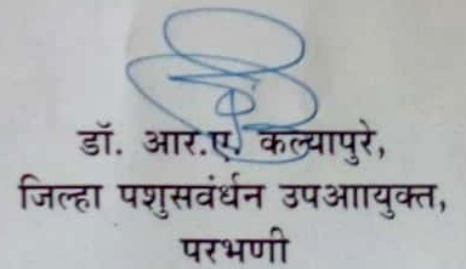 डॉ. आर.ए. कल्यापुरे,
जिल्हा पशुसवंर्धन उपआायुक्त,
परभणी